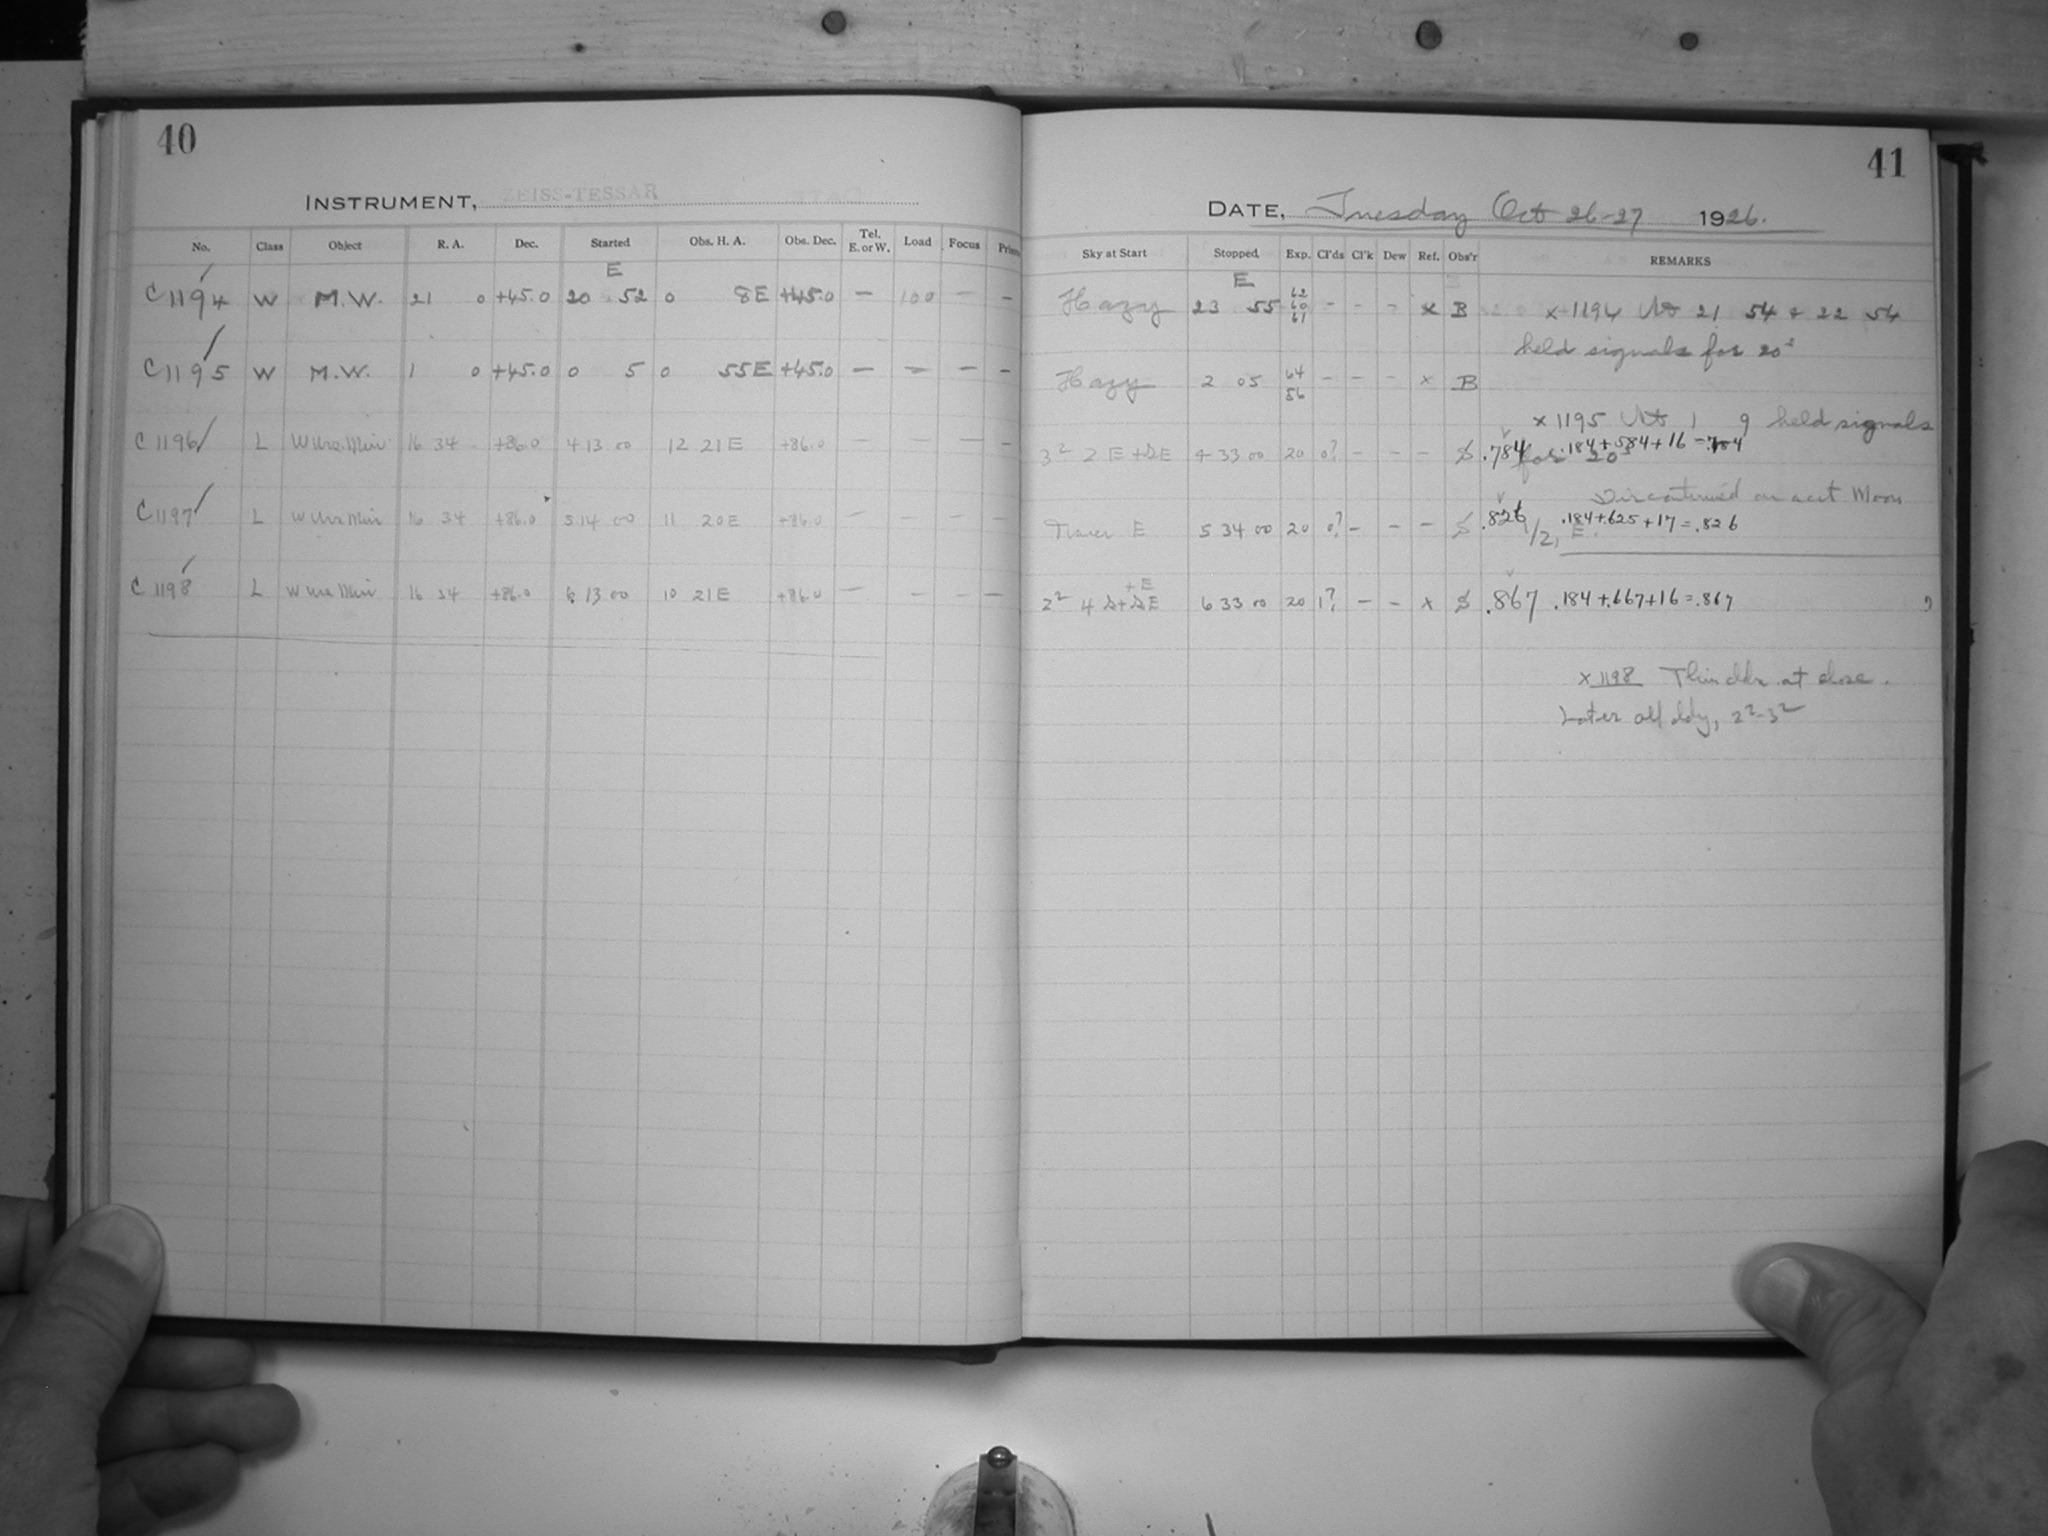 40
INSTRUMENT, ZEISS-TESSAR
No. Class Object R. A. Dec. Started Obs. H. A. Obs. Dec. Tel. E. or W. Load Focus
E
C 1194 W M.W. 21 0 +45.0 20 52 0 8E +45.0 — 100 — —
C 1195 W M.W. 1 0 +45.0 0 5 0 55E +45.0 — — — —
C 1196 L 16 34 +86.0 4 13 00 12 21 E +86.0 — — — —
C 1197 L 16 34 +86.0 5 14 00 11 20 E +86.0 — — — —
C 1198 L 16 34 +86.0 6 13 00 10 21 E +86.0 — — — —
41
DATE, Tuesday Oct 26-27 1926.
Sky at Start Stopped Exp. Cl'ds Cl'k Dew Ref. Obs'r REMARKS
E
Hazy 23 55 62 60 61 - - - x B x 1194 At 21 54 + 22 54
held signals for 20s
Hazy 2 05 64 56 - - - x B
x 1195 At 1 9 held signals
for 20s
3² 2 E + 4 33 00 20 0? - - - .784 .184+.584+16=.784
Discontinued on acct Moon
E 5 34 00 20 0? - - - .826 .184+.625+17=.826
1/2, E.
+ E
2² 4 6 33 00 20 1? - - x .867 .184+.667+16=.867
x 1198 Thin clds. at close.
Later all cldy, 2²-3²